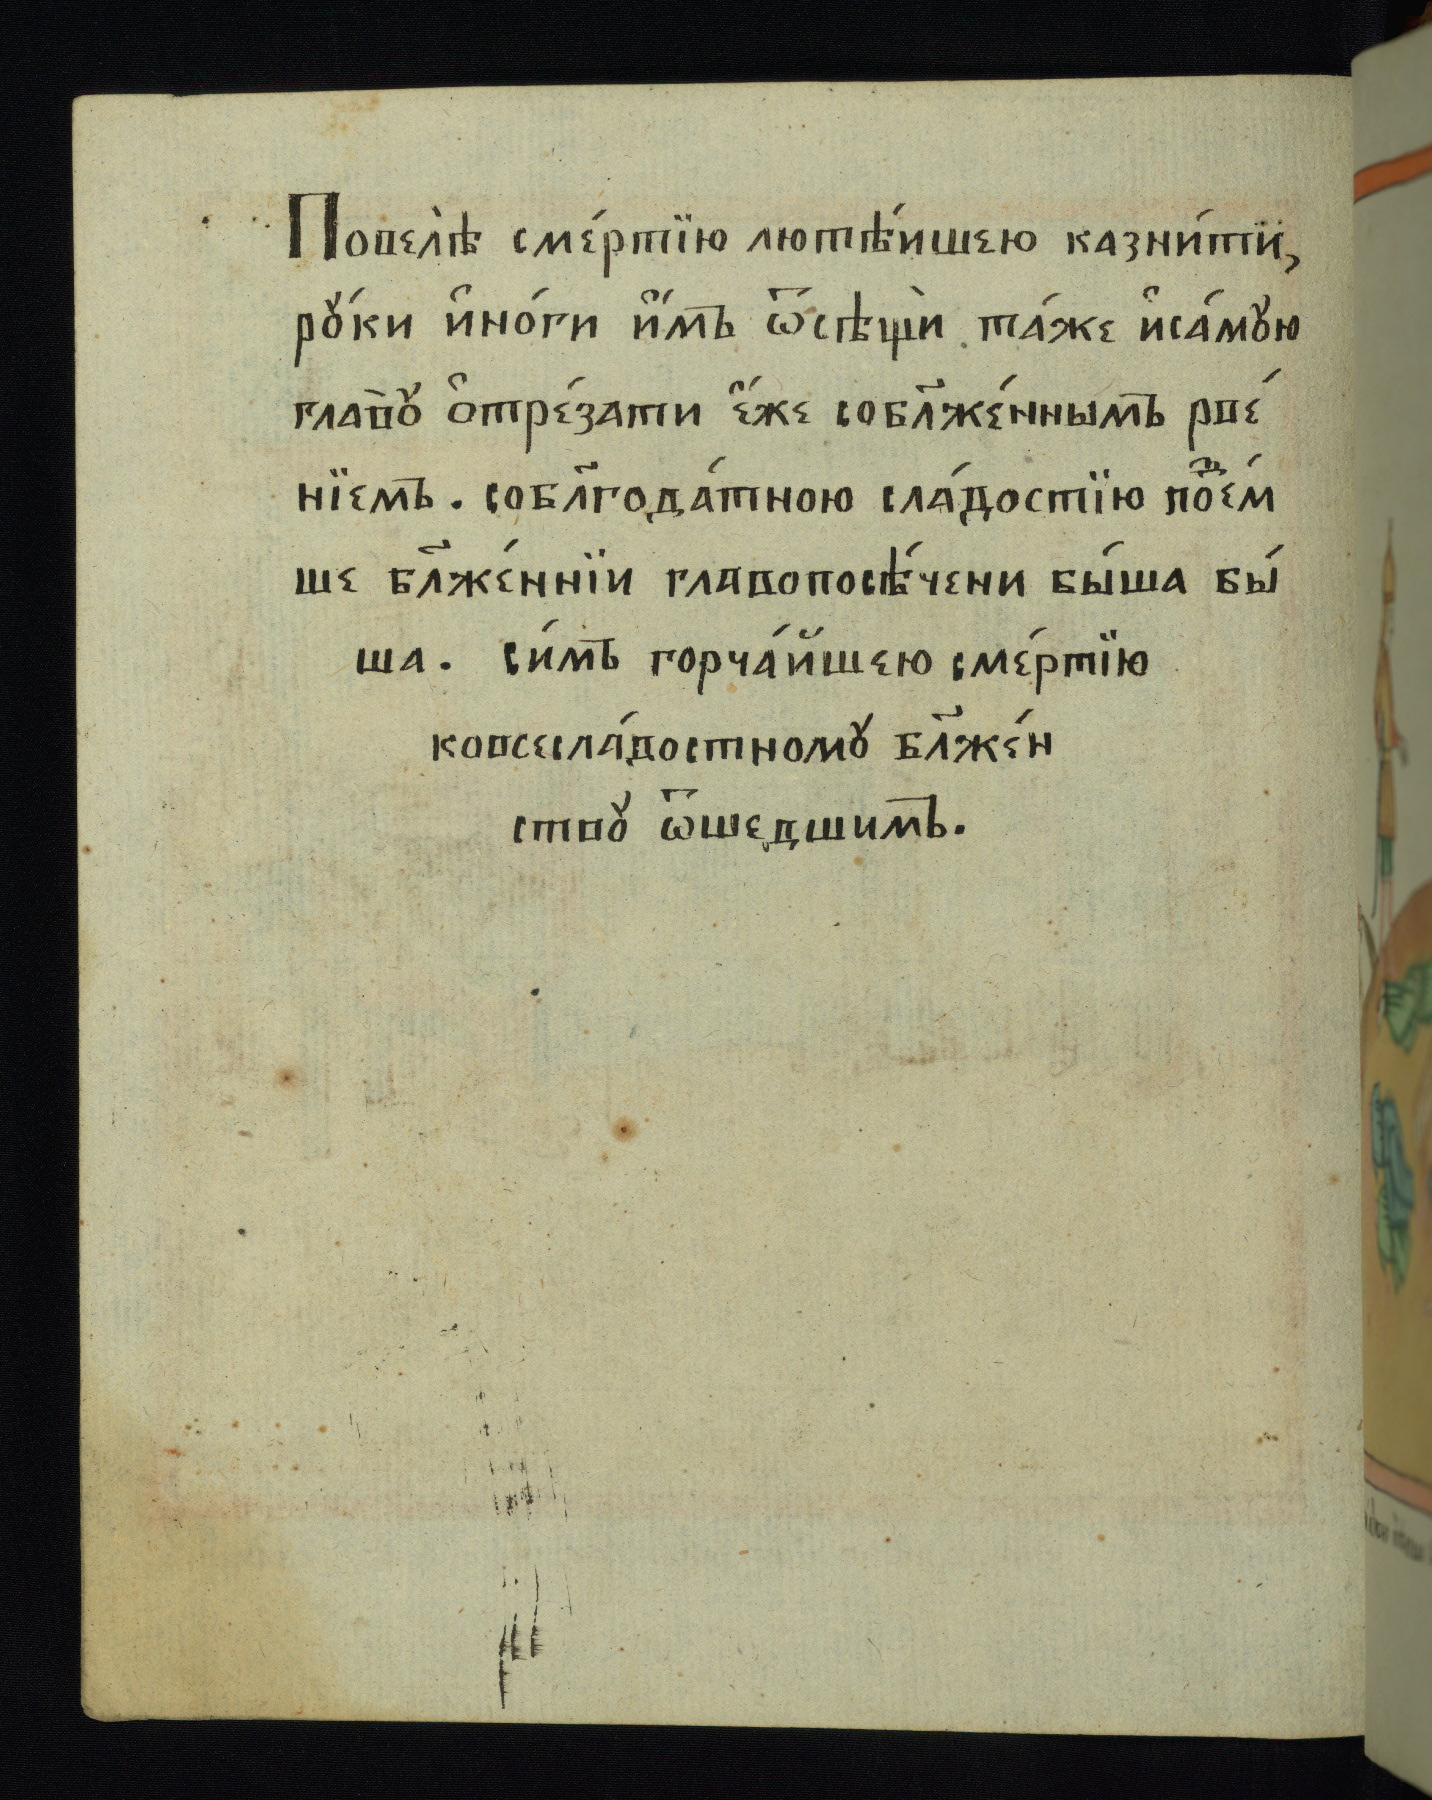 Повелѣ̀ сме́ртїю лютѣ́ишею казни́тї,
рꙋ́ки и҆но́ги и҆́мъ ѿсѣщѝ та́же и҆са́мꙋю
главꙋ̀ ѻ҆тре́зати є҆́же собл҃же́ннымъ рве́
нїемъ. собл҃года́тною сла́достїю пое́м
ше бл҃же́ннїи главопосѣ́чени бы́ша бы́
ша. си́мъ горча́йшею сме́ртїю
ковсесла́достномꙋ бл҃же́н
ствꙋ ѿшедшимъ.